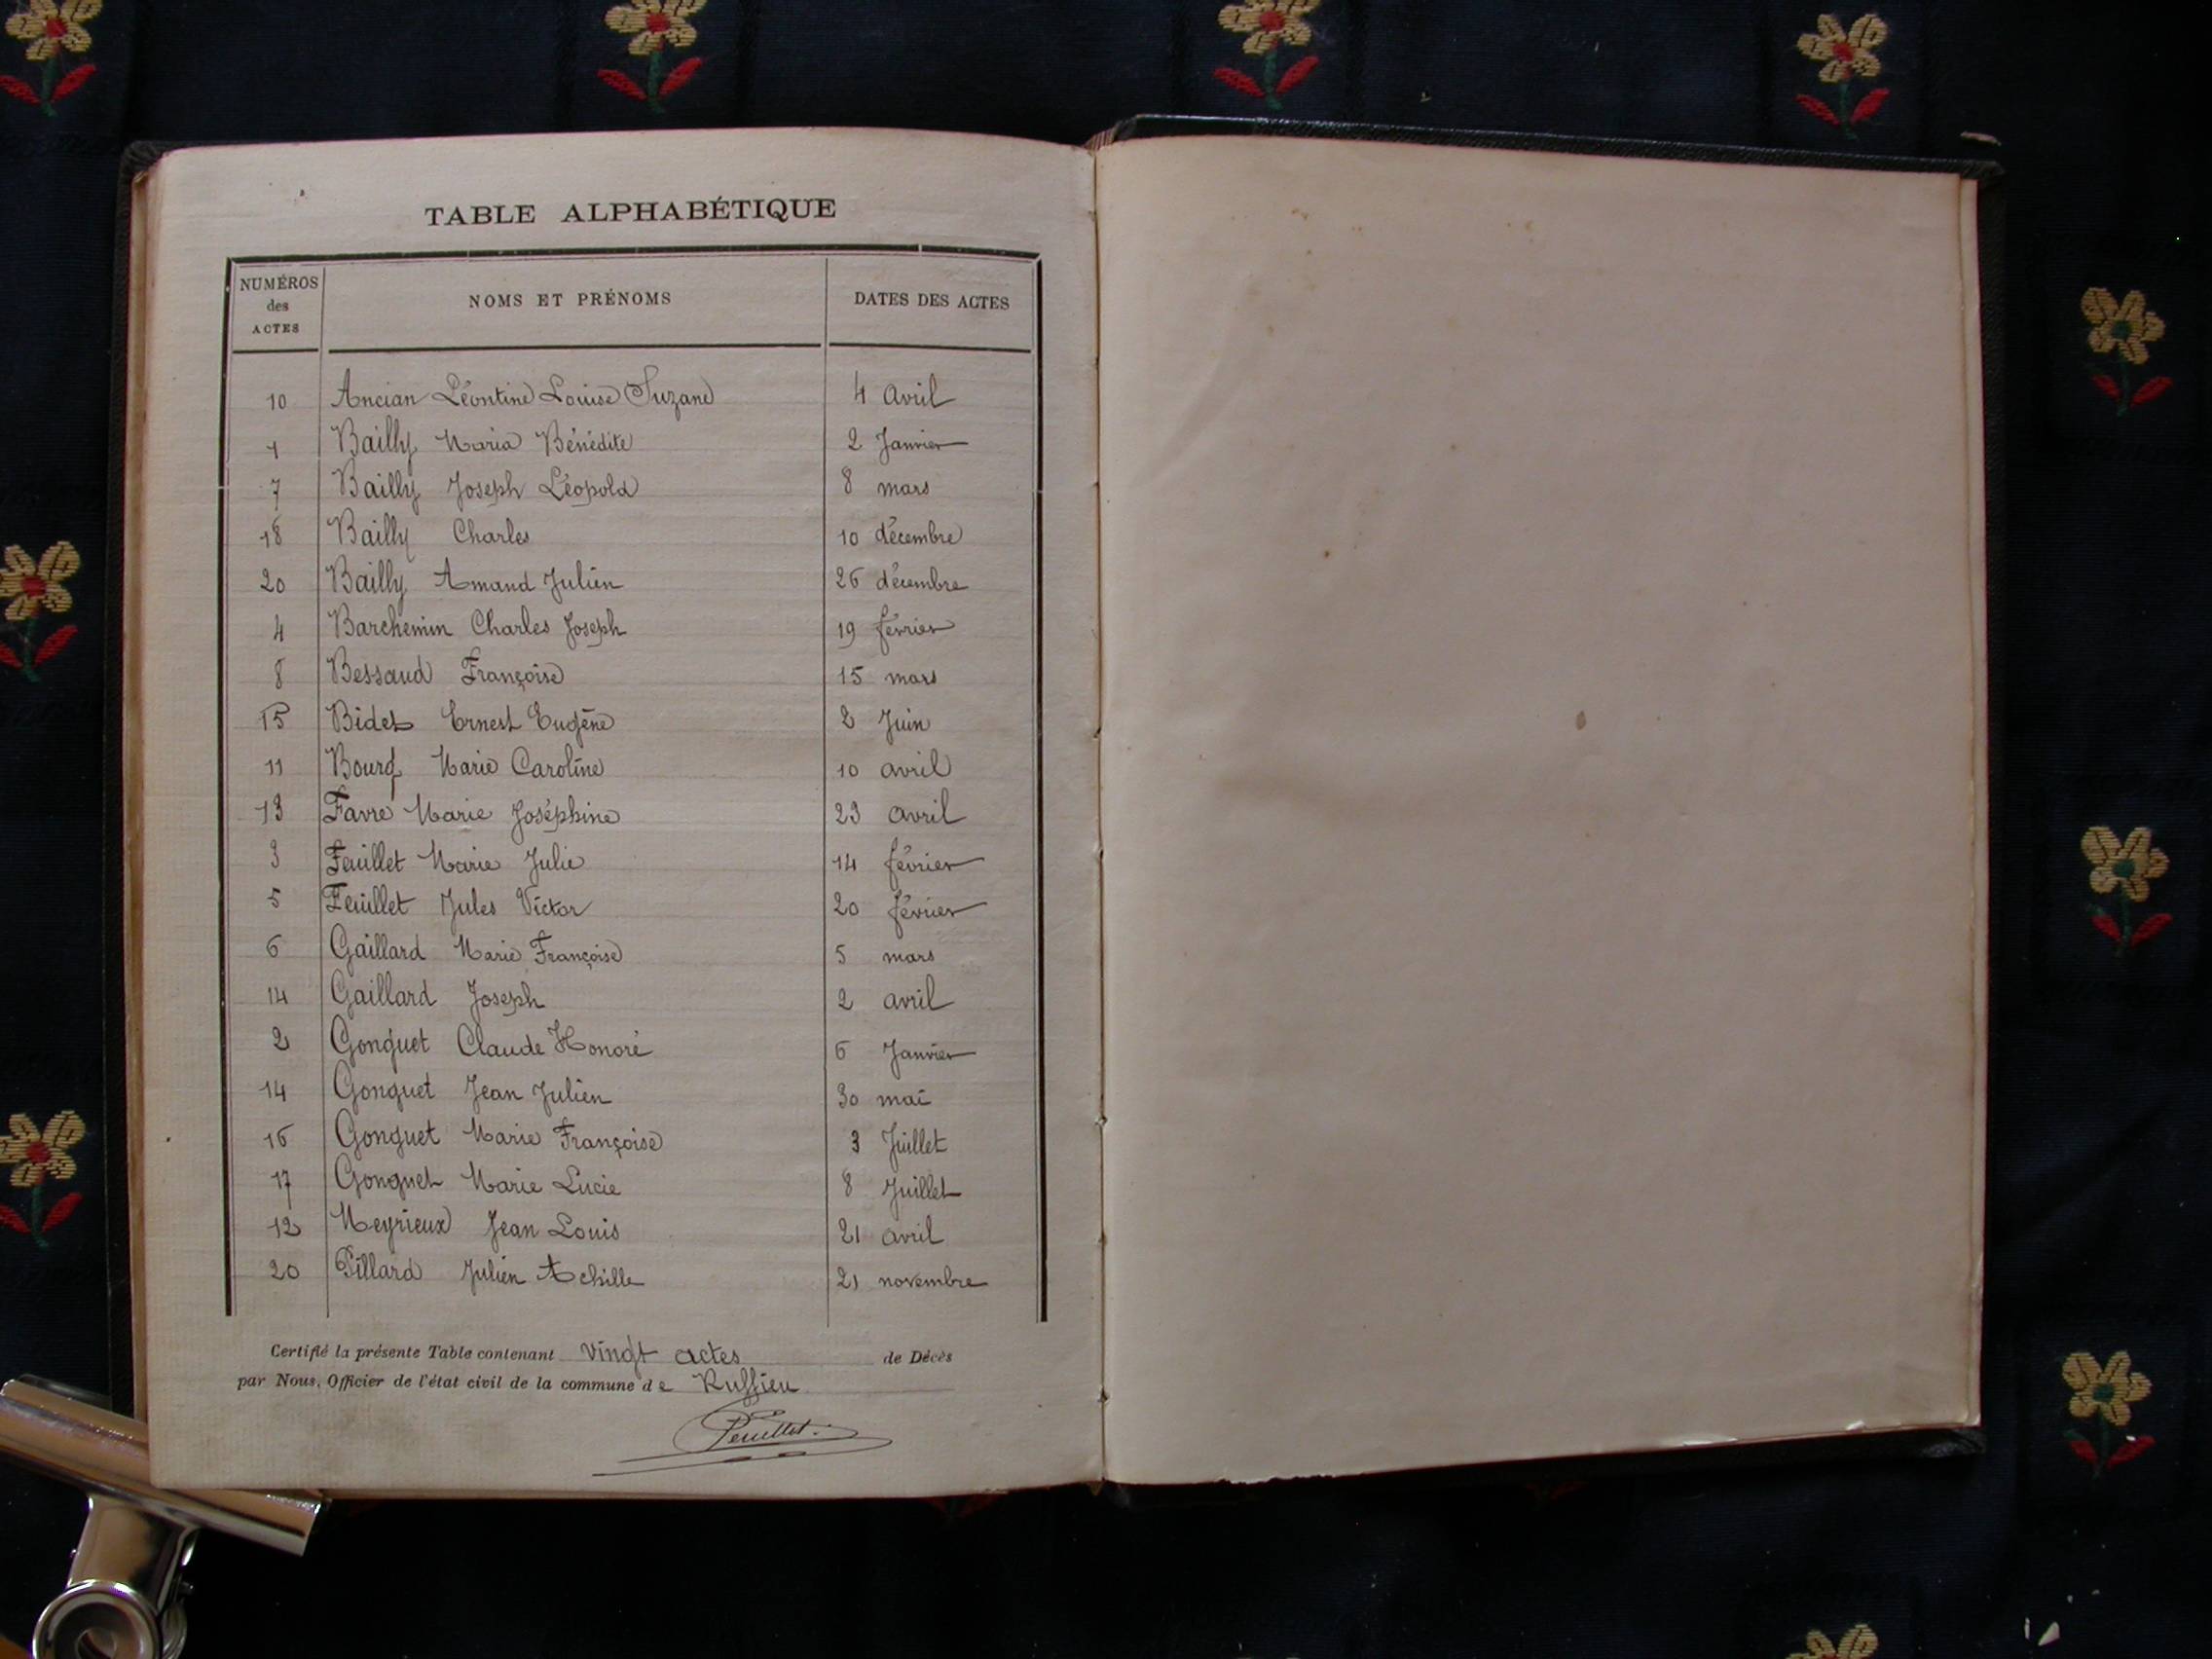 TABLE ALPHABÉTIQUE
NUMÉROS des ACTES NOMS ET PRÉNOMS DATES DES ACTES
10 Ancian Léontine Louise Suzane 4 Avril
1 Bailly Maria Bénédite 2 Janvier
7 Bailly Joseph Léopold 8 mars
18 Bailly Charles 10 décembre
20 Bailly Amand Julien 26 décembre
4 Barchemin Charles Joseph 19 février
8 Bessaud Françoise 15 mars
15 Bidet Ernest Eugène 2 Juin
11 Bourg Marie Caroline 10 avril
13 Favre Marie Joséphine 23 avril
3 Feuillet Marie Julie 14 février
5 Feuillet Jules Victor 20 février
6 Gaillard Marie Françoise 5 mars
14 Gaillard Joseph 2 avril
2 Gonguet Claude Honoré 6 Janvier
14 Gonguet Jean Julien 30 mai
16 Gonguet Marie Françoise 3 Juillet
17 Gonguet Marie Lucie 8 Juillet
12 Meyrieux Jean Louis 21 avril
20 Pillard Julien Achille 21 novembre
Certifié la présente Table contenant vingt actes de Décès
par Nous, Officier de l'état civil de la commune de Ruffieu
Feuillet.